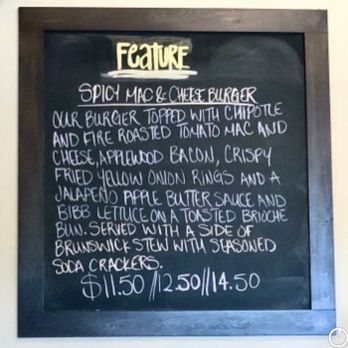 FEATURE
SPICY MAC & CHEESE BURGER
OUR BURGER TOPPED WITH CHIPOTLE
AND FIRE ROASTED TOMATO MAC AND
CHEESE, APPLEWOOD BACON, CRISPY
FRIED YELLOW ONION RINGS AND A
JALAPEÑO APPLE BUTTER SAUCE AND
BIBB LETTUCE ON A TOASTED BRIOCHE
BUN. SERVED WITH A SIDE OF
BRUNSWICK STEW WITH SEASONED
SODA CRACKERS.
$11.50//12.50//14.50